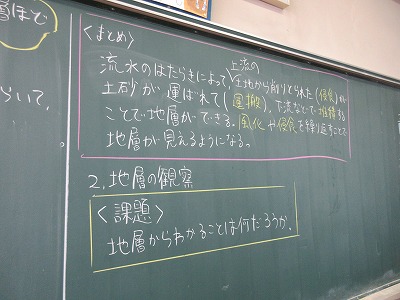 層ほど
〈まとめ〉
上流の
流水のはたらきによって,土地から削りとられた(侵食)
土砂が,運ばれて(運搬),下流などで堆積する
ことで地層ができる。風化や侵食を繰り返すことで
地層が見えるようになる。
2.地層の観察
〈課題〉
地層からわかることは何だろうか。